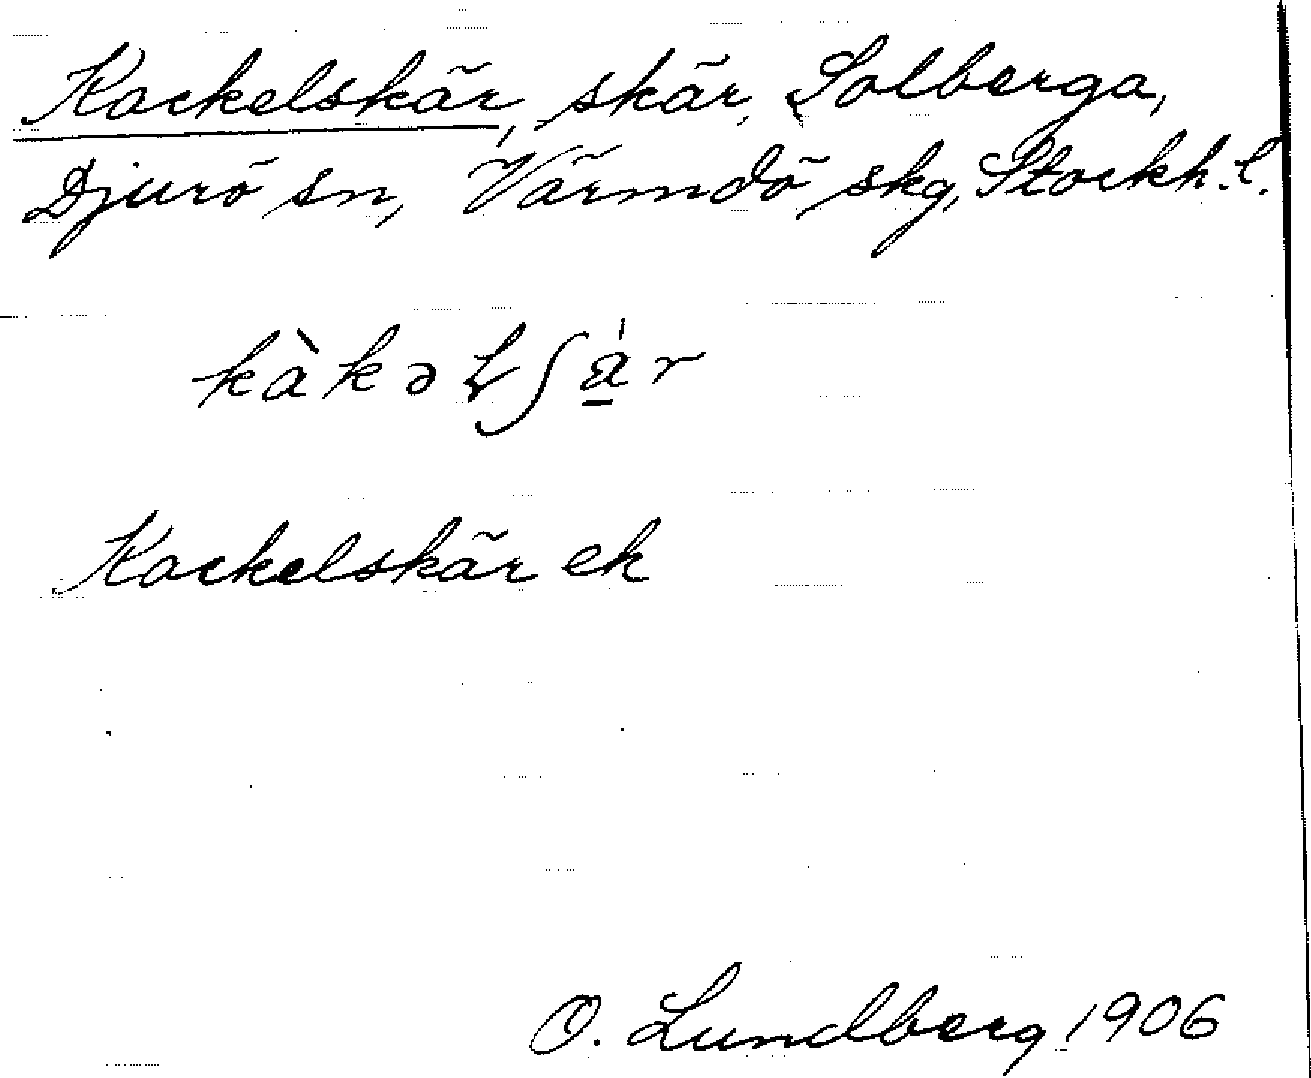 Kackelskär, skär, Solberga,
Djurö sn, Värmdö skg, Stockh. l.
kàkəƚʃa̲̍r
Kackelskär ek
O. Lundberg 1906